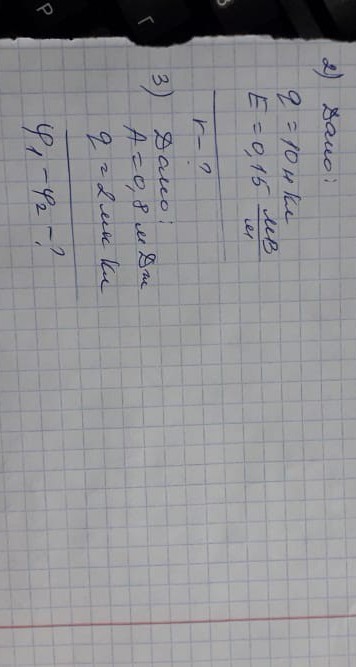 2) Дано:
q = 10 н Кл
E = 0,15 мВ/м
r - ?
3) Дано:
A = 0,8 м Дж
q = 2 мк Кл
φ₁ - φ₂ - ?